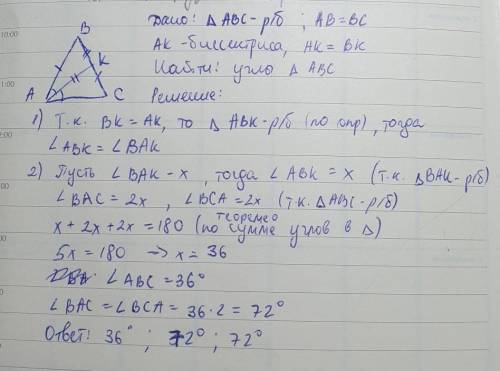 10:00
B
K
A
C
Дано: Δ ABC - р/б ; AB = BC
AK - биссектриса, AK = BK
Найти: углы Δ ABC
Решение:
1) Т.к. BK = AK, то Δ ABK - р/б (по опр), тогда
∠ABK = ∠BAK
2) Пусть ∠BAK - x, тогда ∠ABK = x (т.к. ΔBAK - р/б)
∠BAC = 2x, ∠BCA = 2x (т.к. ΔABC - р/б)
x + 2x + 2x = 180 (по теореме о сумме углов в Δ)
5x = 180 → x = 36
∠ABC = 36°
∠BAC = ∠BCA = 36·2 = 72°
Ответ: 36° ; 72° ; 72°